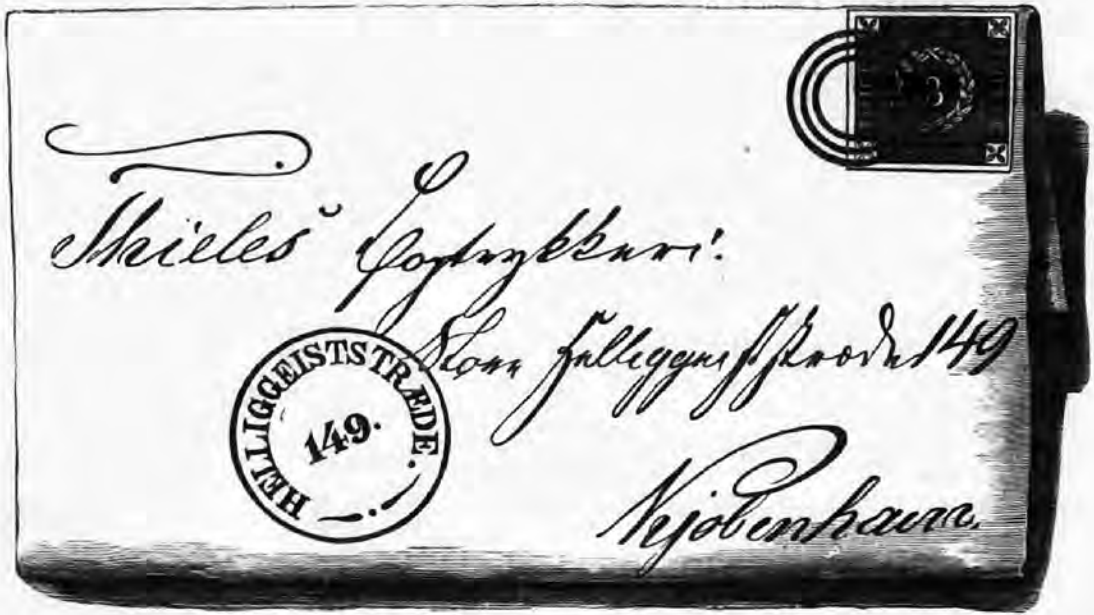 8
Thieles Bogtrykkeri.
Store Helliggeiststræde 149
HELLIGGEISTSTRÆDE.
149.
Kjöbenhavn.